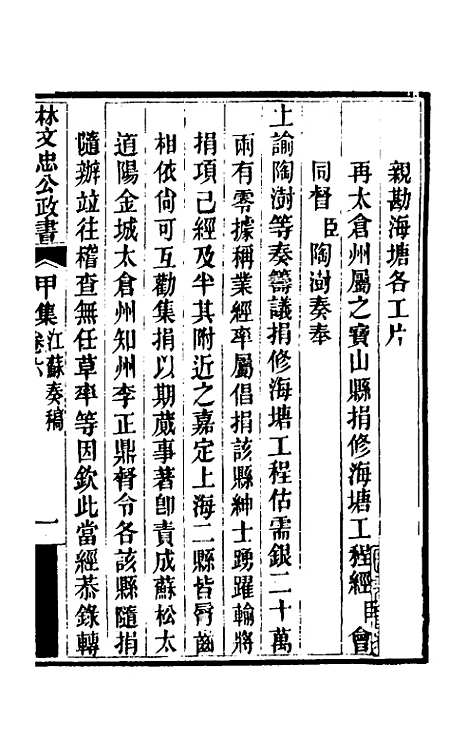 親勘海塘各工片
再太倉州屬之寶山縣捐修海塘工程經臣會
同督臣陶澍奏奉
上諭陶澍等奏籌議捐修海塘工程估需銀二十萬
兩有零據稱業經率屬倡捐該縣紳士踴躍輸將
捐項已經及半其附近之嘉定上海二縣皆脣齒
相依尙可互勸集捐以期蕆事著卽責成蘇松太
道陽金城太倉州知州李正鼎督令各該縣隨捐
隨辦竝往稽查無任草率等因欽此當經恭錄轉
林文忠公政書 甲集 江蘇奏稿卷六 一